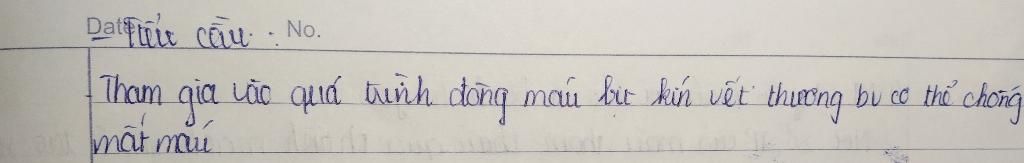 Date No.
Tiểu cầu:
- Tham gia vào quá trình đông máu bịt kín vết thương bv cơ thể chống
mất máu